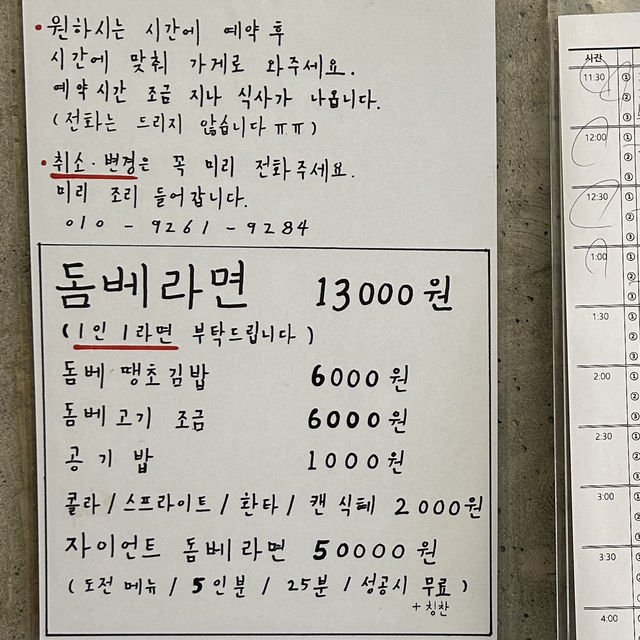 • 원하시는 시간에 예약 후
시간에 맞춰 가게로 와주세요.
예약시간 조금 지나 식사가 나옵니다.
(전화는 드리지 않습니다 ㅠㅠ)
• 취소·변경은 꼭 미리 전화주세요.
미리 조리 들어갑니다.
010 - 9261 - 9284
돔베라면 13000원
(1인 1라면 부탁드립니다)
돔베 땡초김밥 6000원
돔베고기 조금 6000원
공기밥 1000원
콜라/스프라이트/환타/캔식혜 2000원
자이언트 돔베라면 50000원
(도전 메뉴/5인분/25분/성공시 무료)
+ 칭찬
시간
11:30 ①
②
③
12:00 ①
②
③
12:30 ①
②
③
1:00 ①
②
③
1:30 ①
②
③
2:00 ①
②
③
2:30 ①
②
③
3:00 ①
②
③
3:30 ①
②
③
4:00 ①